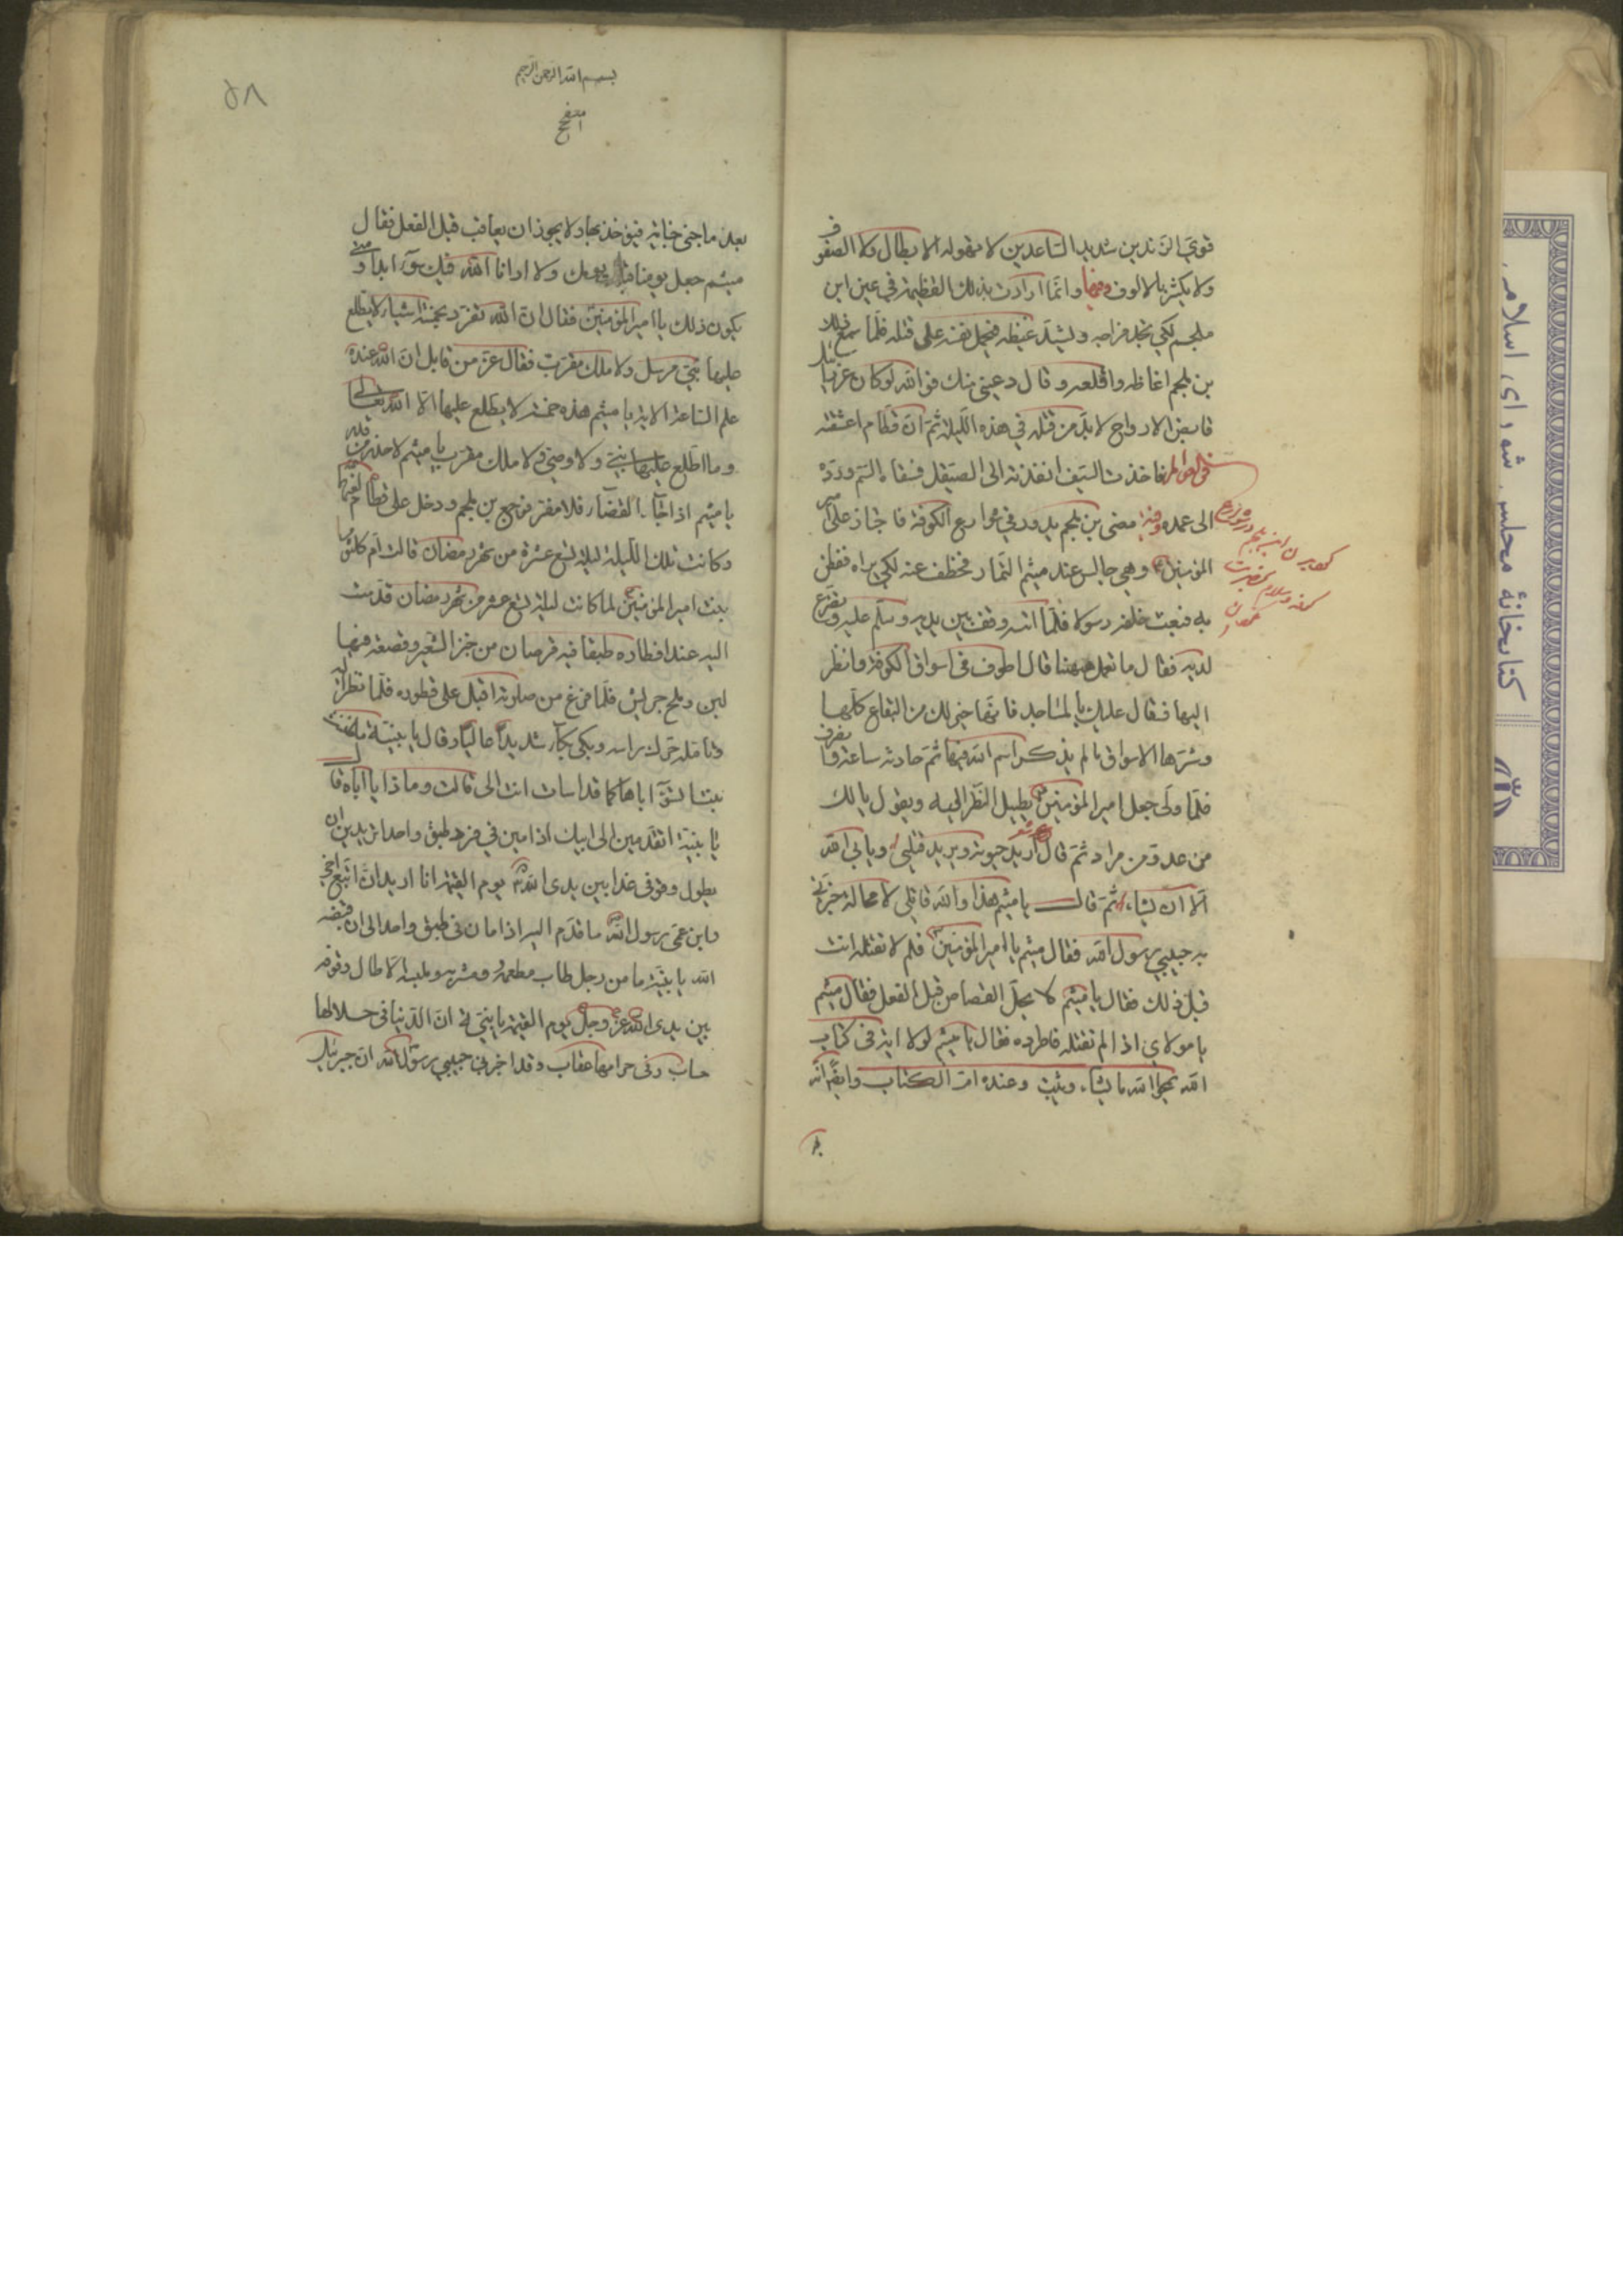 قوي الزندين شديد الساعدين لا تهوله الابطال ولا الصفوف
ولا يكثر بالالوف وفيها وانما ارادت بذلك العظيمة في عين ابن
ملجم لكي يجد فراصه ويشتد غيظه فيحمل نفسه على قتله فلما سمع
بن ملجم اغاظه واقلعه وقال دعيني منك فوالله لو كان عزرائيل
قابض الارواح لابد من قتله في هذه الليلة ثم ان قطام اعشقته
فاخذت السيف انفذته الى الصيقل فسقاه السم ورده
الى عمده مضى بن ملجم يدور في شوارع الكوفة فاجتاز على امير
المؤمنين وهو جالس عند ميثم التمار فخطف عنه لكي يراه ففطن
به فبعث خلفه رسولا فلما اتاه وقف بين يديه وسلم عليه وتضرع
لديه فقال ما تعمل ههنا قال اطوف في اسواق الكوفة وانظر
اليها فقال عليك بالمساجد فانها خير لك من البقاع كلها
وشرها الاسواق ما لم يذكر اسم الله فيها ثم حادثه ساعة وانصرف
فلما ولى جعل امير المؤمنين يطيل النظر اليه ويقول يا لك
من عدو من مراد ثم قال اريد حيوته ويريد قتلي ويابى الله
الا ان يشاء ثم قال يا ميثم هذا والله قاتلي لا محالة خبرني
به حبيبي رسول الله فقال ميثم يا امير المؤمنين فلم لا تقتله انت
قبل ذلك فقال يا ميثم لا يحل القصاص قبل الفعل فقال ميثم
يا مولاي اذا لم تقتله فاطرده فقال يا ميثم لولا اية في كتاب
الله يمحوا الله ما يشاء ويثبت وعنده ام الكتاب وايضا انه
بسم الله الرحمن الرحيم
٥٨
بعد ما جنى جناية فيؤخذ بها ولا يجوز ان يعاقب قبل الفعل فقال
ميثم جعل يومنا قبل يومك ولا ارانا الله فيك سوء ابدا ومتى
يكون ذلك يا امير المؤمنين فقال ان الله تفرد بخمسة اشياء لا يطلع
عليها نبي مرسل ولا ملك مقرب فقال عز من قايل ان الله عنده
علم الساعة الاية يا ميثم هذه خمسة لا يطلع عليها الا الله تعالى
وما اطلع عليها نبي ولا وصي ولا ملك مقرب يا ميثم لا حذر من قدر
يا ميثم اذا جاء القضاء فلا مفر فرجع بن ملجم ودخل على قطام لعنهما
وكانت تلك الليلة ليلة تسع عشرة من شهر رمضان قالت ام كلثوم
بنت امير المؤمنين لما كانت ليلة تسع عشر من شهر رمضان قدمت
اليه عند افطاره طبقا فيه قرصان من خبز الشعير وقصعة فيها
لبن وملح جريش فلما فرغ من صلوته اقبل على فطوره فلما نظر اليه
وتامله حرك راسه وبكى بكاء شديدا عاليا وقال يا بنية ما ظننت
بنتا تسؤ اباها كما قد اسات انت الى قالت وماذا يا اباه قال
يا بنية اتقدمين الى ابيك ادامين في فرد طبق واحد اتريدين ان
يطول وقوفي غدا بين يدي الله يوم القيمة انا اريد ان اتبع اخي
وابن عمي رسول الله ما قدم اليه ادامان في طبق واحد الى ان قبضه
الله يا بنية ما من رجل طاب مطعمه ومشربه وملبسه الا طال وقوفه
بين يدي الله عز وجل يوم القيمة يا بنية ان الدنيا في حلالها
حساب وفي حرامها عقاب وقد اخبرني حبيبي رسول الله ان جبرئيل
كتابخانهٔ مجلس شورای اسلامی